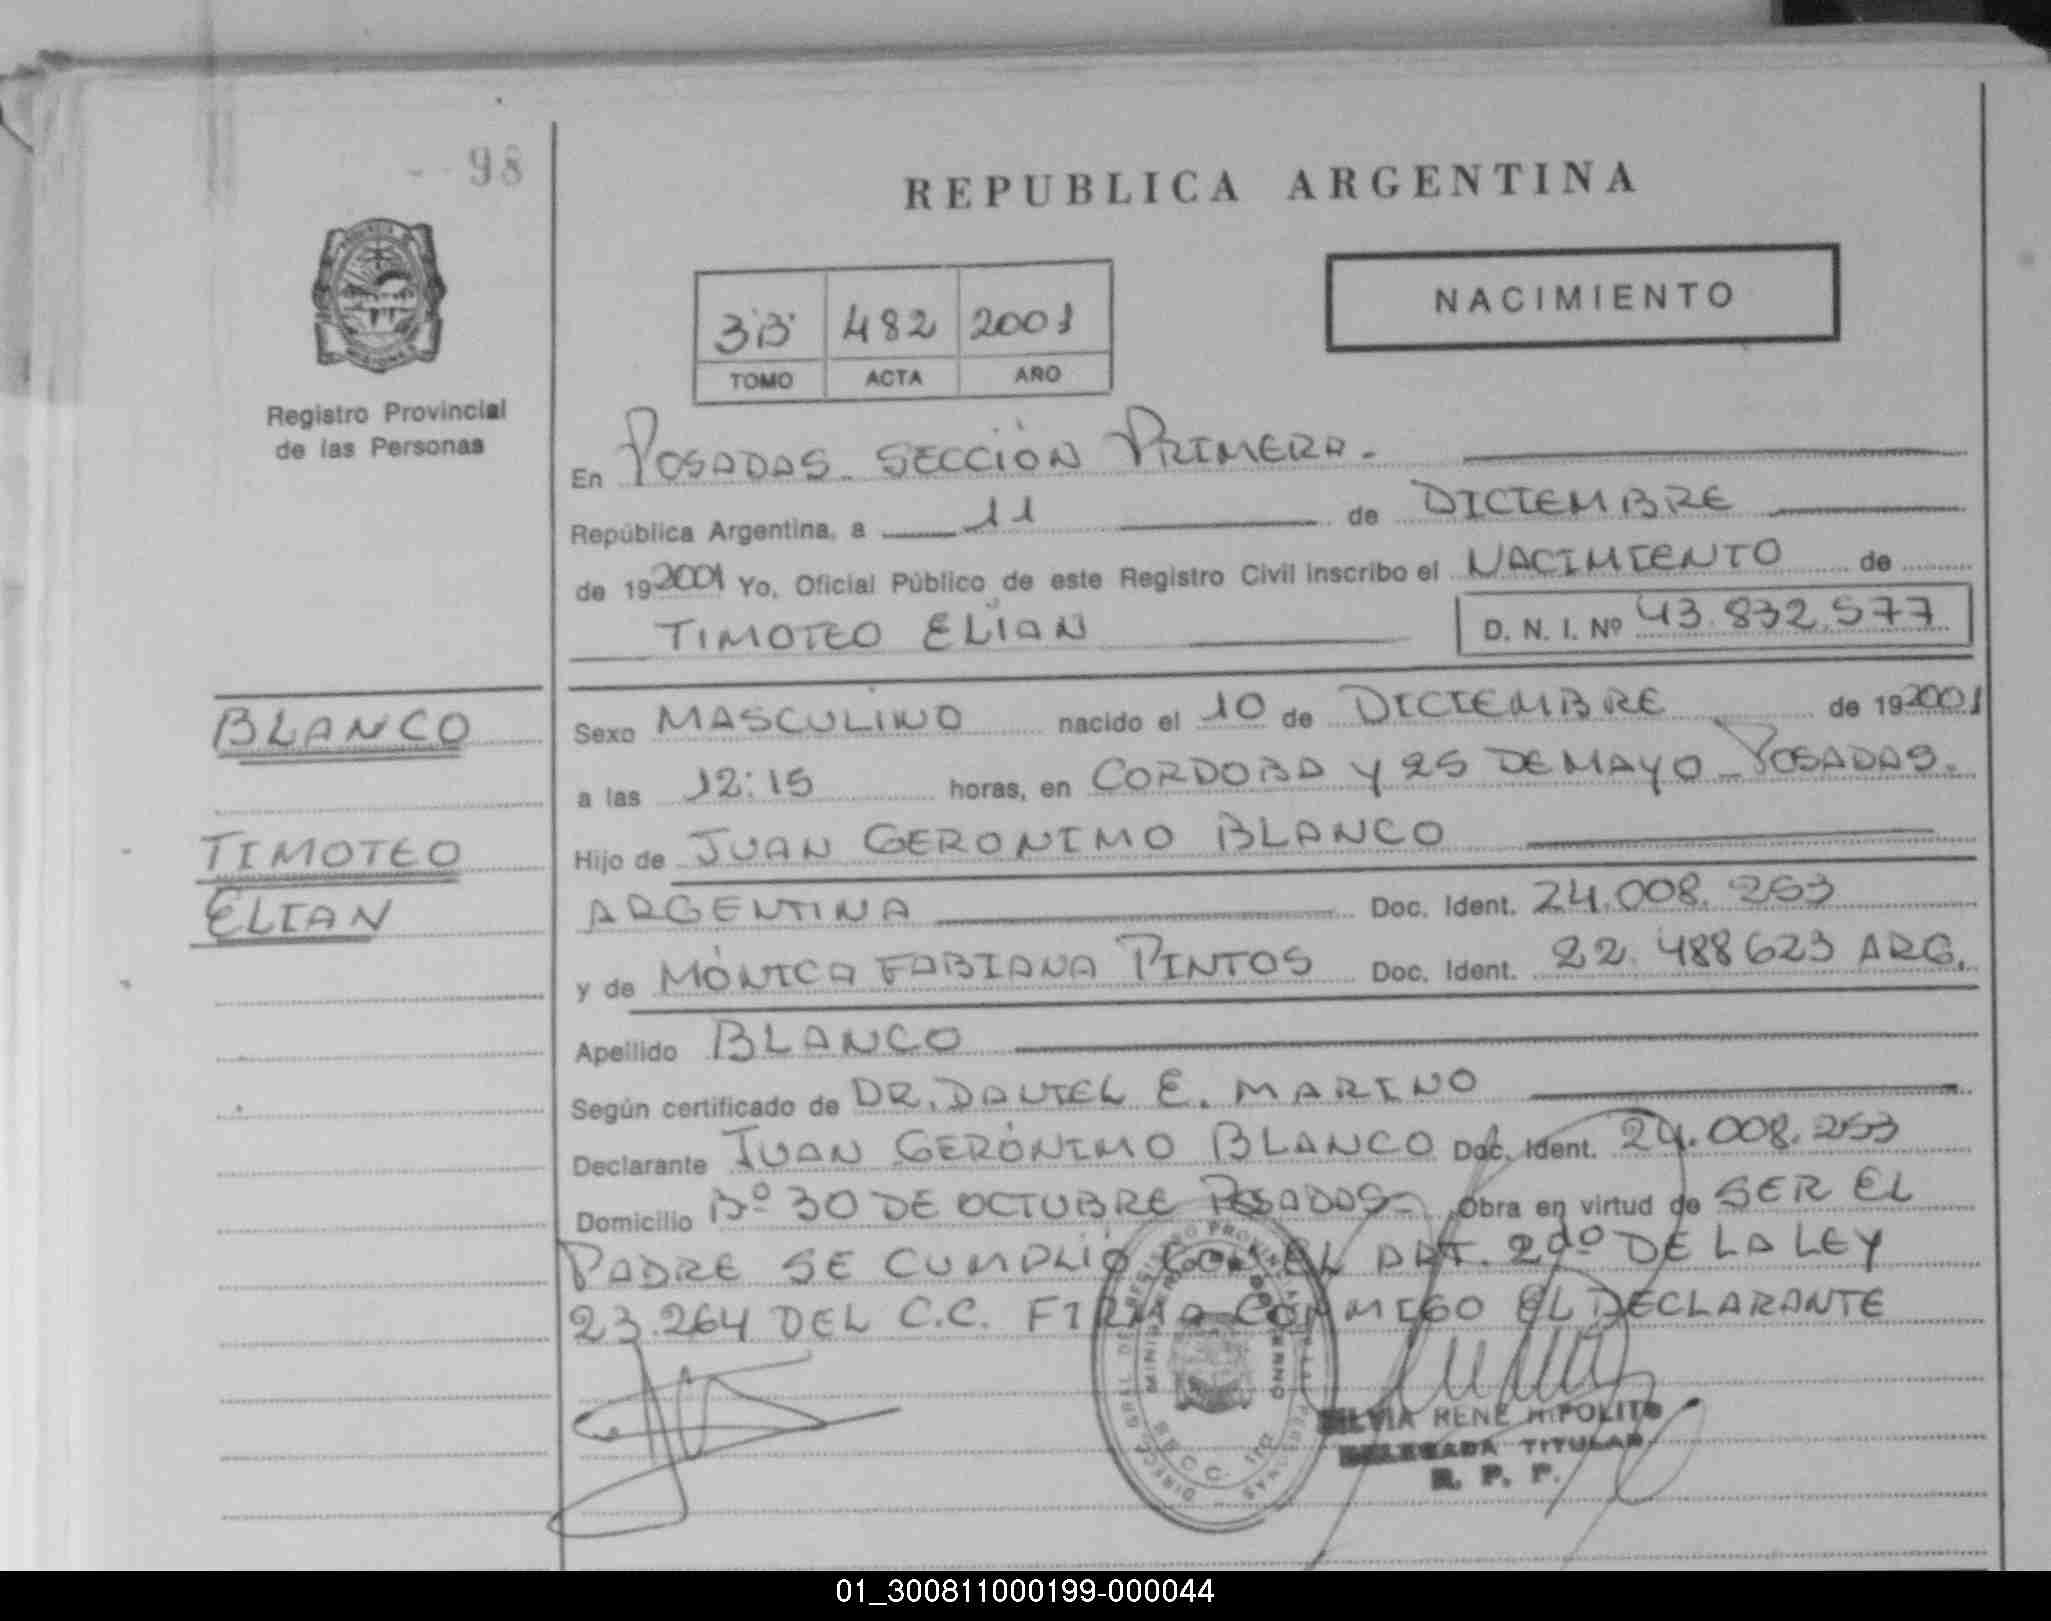 98
REPUBLICA ARGENTINA
NACIMIENTO
3"B" 482 2001
TOMO ACTA AÑO
Registro Provincial
de las Personas
En POSADAS - SECCIÓN PRIMERA -
República Argentina, a 11 de DICIEMBRE
de 192001 Yo, Oficial Público de este Registro Civil inscribo el NACIMIENTO de
TIMOTEO ELIAN D. N. I. Nº 43.832.577
BLANCO
TIMOTEO
ELIAN
Sexo MASCULINO nacido el 10 de DICIEMBRE de 192001
a las 12:15 horas, en CORDOBA Y 25 DE MAYO - POSADAS.
Hijo de JUAN GERONIMO BLANCO
ARGENTINA Doc. Ident. 24.008.253
y de MÓNICA FABIANA PINTOS Doc. Ident. 22.488623 ARG.
Apellido BLANCO
Según certificado de DR. DANIEL E. MARINO
Declarante JUAN GERÓNIMO BLANCO Doc. Ident. 24.008.253
Domicilio Bº 30 DE OCTUBRE POSADAS - Obra en virtud de SER EL
PADRE SE CUMPLIÓ CON EL ART. 2dº DE LA LEY
23.264 DEL C.C. FIRMA CONMIGO EL DECLARANTE
SILVIA RENE HIPOLITO
DELEGADA TITULAR
R. P. P.
01_300811000199-000044